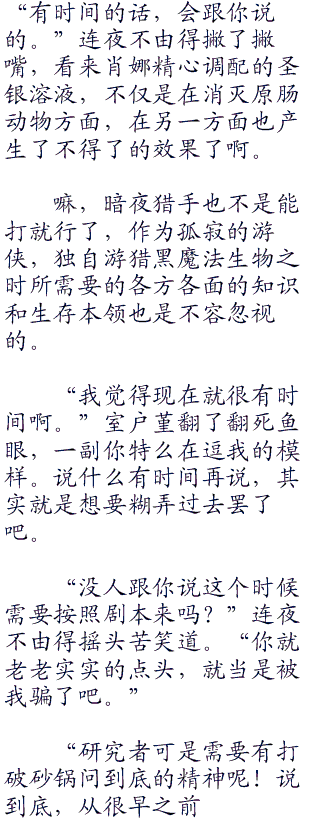 “有时间的话，会跟你说
的。”连夜不由得撇了撇
嘴，看来肖娜精心调配的圣
银溶液，不仅是在消灭原肠
动物方面，在另一方面也产
生了不得了的效果了啊。
嘛，暗夜猎手也不是能
打就行了，作为孤寂的游
侠，独自游猎黑魔法生物之
时所需要的各方各面的知识
和生存本领也是不容忽视
的。
“我觉得现在就很有时
间啊。”室户堇翻了翻死鱼
眼，一副你特么在逗我的模
样。说什么有时间再说，其
实就是想要糊弄过去罢了
吧。
“没人跟你说这个时候
需要按照剧本来吗？”连夜
不由得摇头苦笑道。“你就
老老实实的点头，就当是被
我骗了吧。”
“研究者可是需要有打
破砂锅问到底的精神呢！说
到底，从很早之前